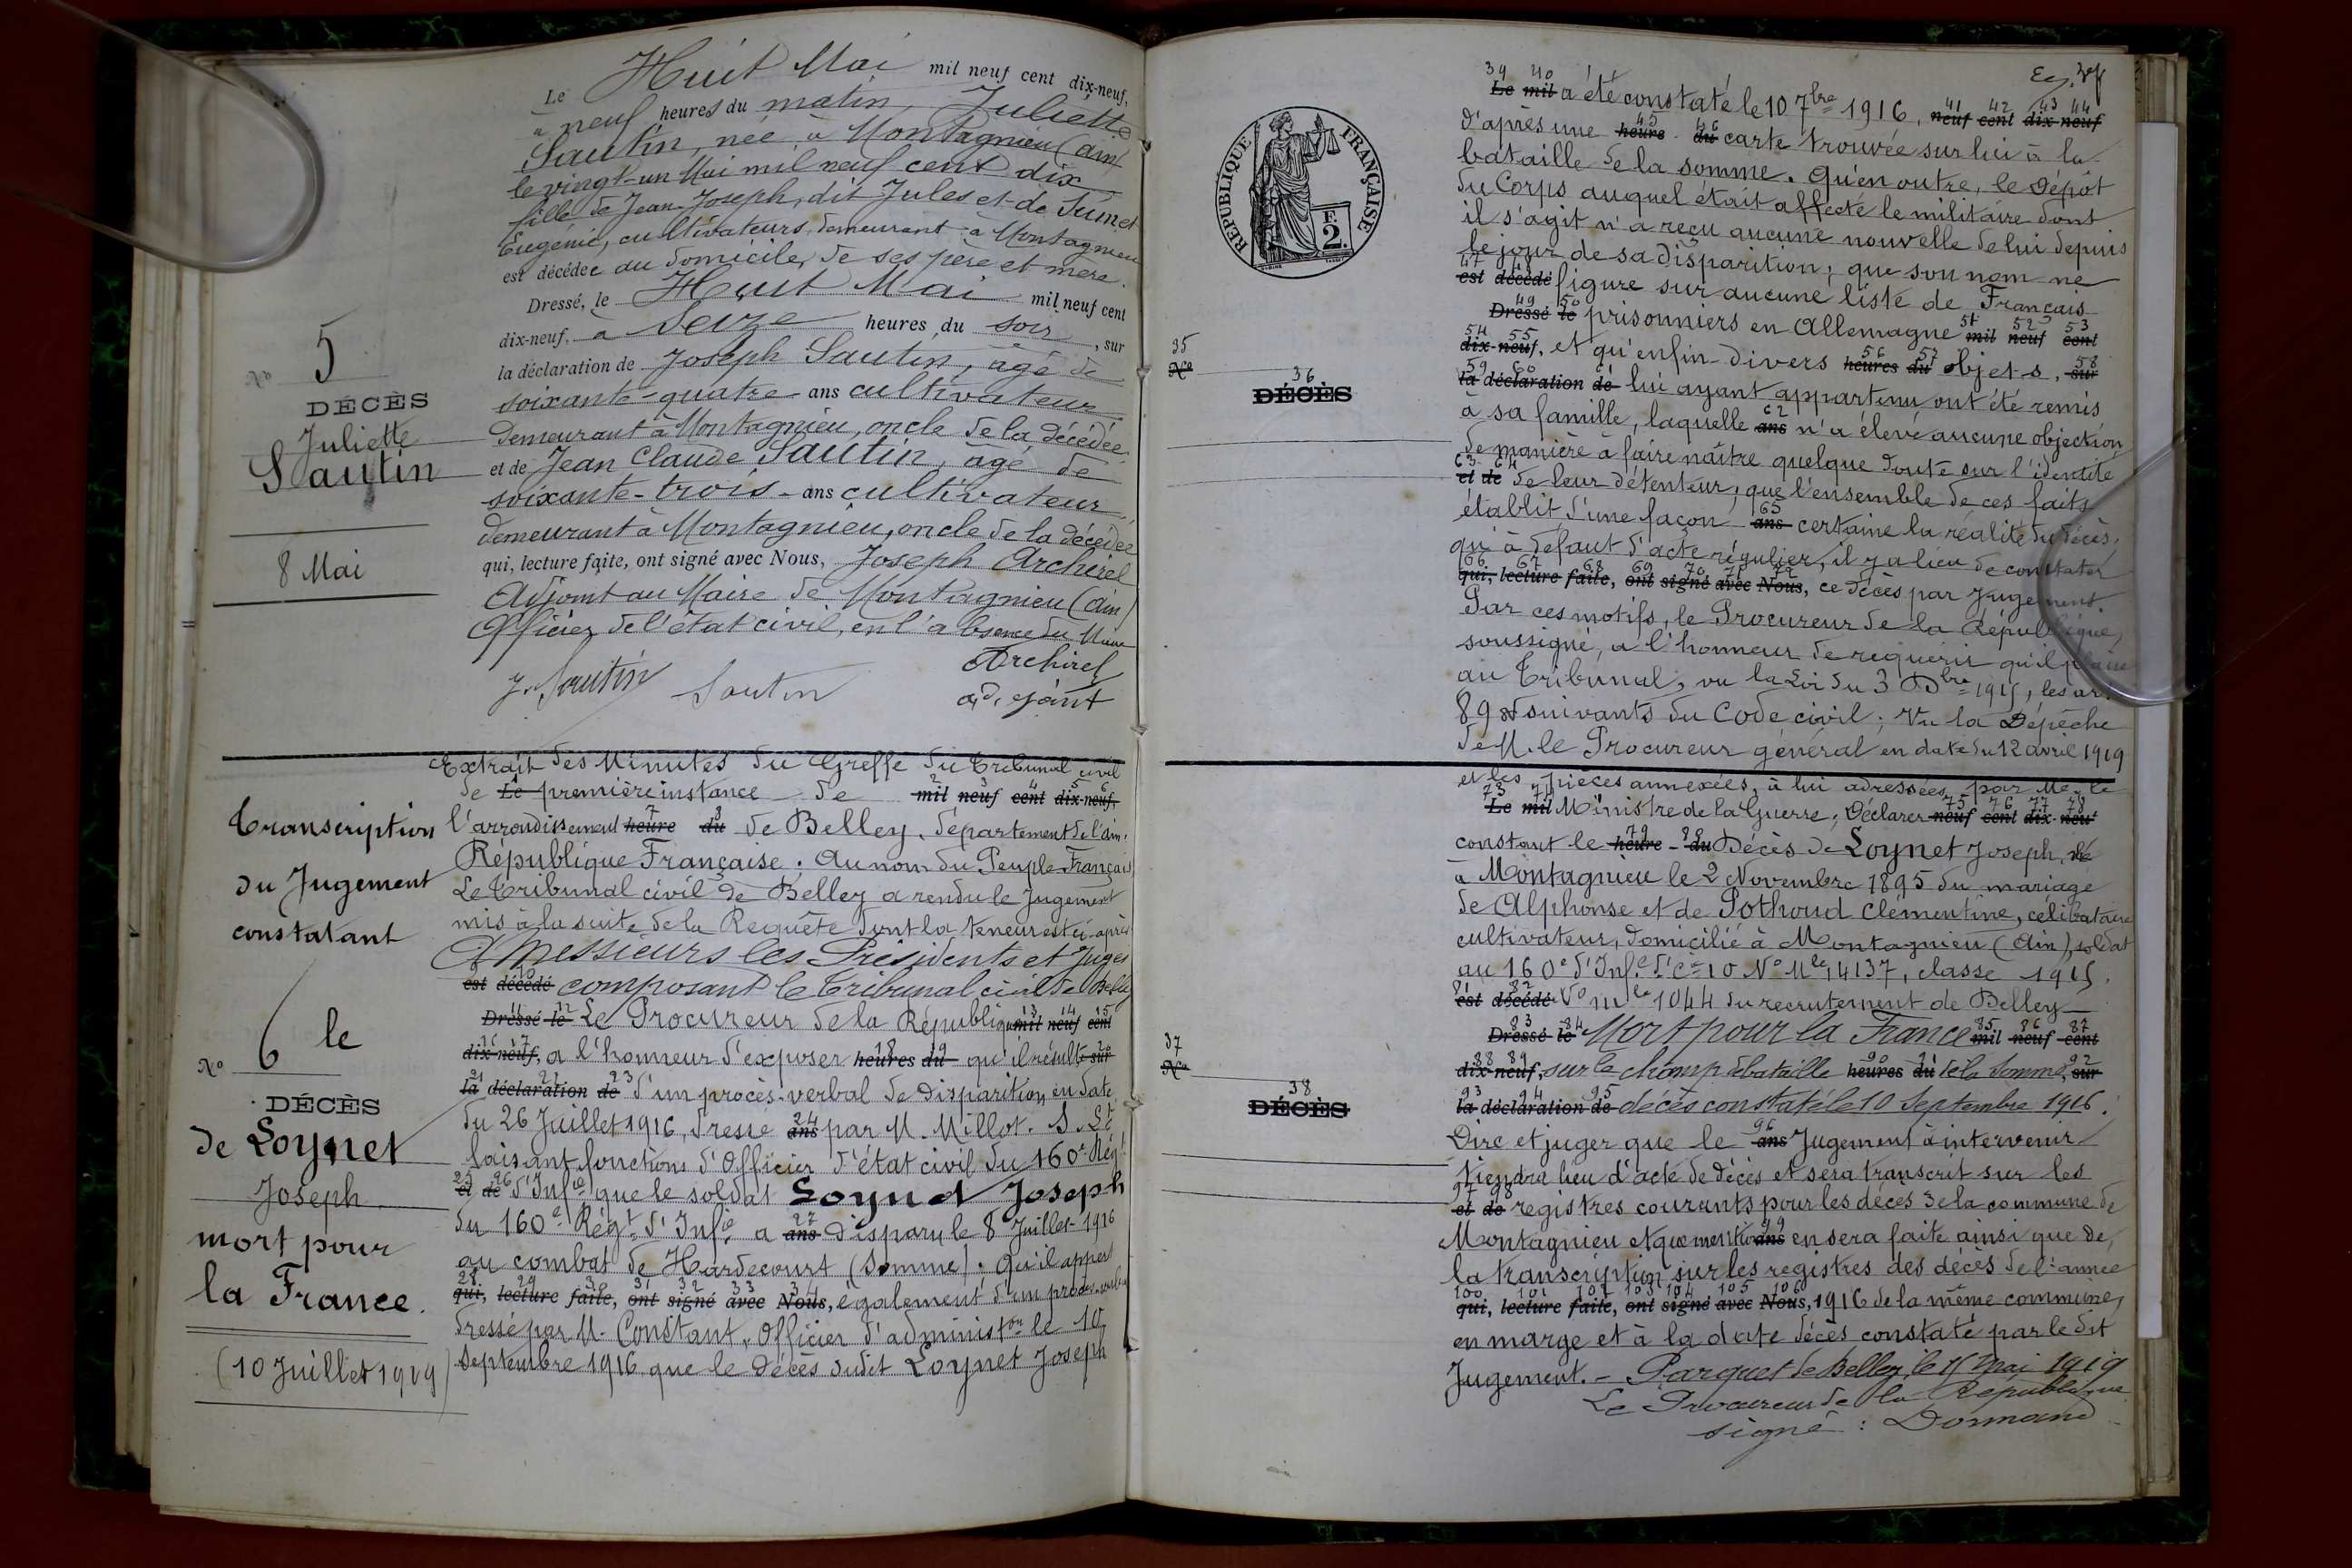 Le Huit Mai mil neuf cent dix-neuf,
à neuf heures du matin, Juliette
Sautin, née à Montagnieu (ain)
le vingt-un Mai mil neuf cent dix
fille de Jean-Joseph, dit Jules et de
Eugénie, cultivateurs, demeurant à Montagnieu
est décédée au domicile, de ses père et mère.
Dressé, le Huit Mai mil neuf cent
dix-neuf, à Seize heures du soir, sur
la déclaration de Joseph Sautin, âgé de
soixante-quatre ans cultivateur
demeurant à Montagnieu, oncle de la décédée
et de Jean Claude Sautin, âgé de
soixante-trois ans cultivateur,
demeurant à Montagnieu, oncle de la décédée
qui, lecture faite, ont signé avec Nous, Joseph Archirel
Adjoint au Maire de Montagnieu (ain)
Officier de l'état civil, en l'absence du Maire
J. Sautin Sautin Archirel
adejoint
No 5
DÉCÈS
Juliette
Sautin
8 Mai
Extrait des Minutes du Greffe du Tribunal civil
de Le première instance de mil neuf cent dix-neuf,
l'arrondissement heure du de Belley, département de l'ain.
République Française; Au nom du Peuple Français
Le Tribunal civil de Belley a rendu le Jugement
mis à la suite de la Requête dont la teneur est ci-après
A Messieurs les Présidents et Juges
est décédé composant le Tribunal civil de Belley
Dressé le Le Procureur de la République mil neuf cent
dix-neuf, a l'honneur d'exposer heures du qu'il résulte sur
la déclaration de d'un procès-verbal de disparition en date
du 26 Juillet 1916, dressé ans par M. Millot. S. Lt
faisant fonctions d'Officier d'état civil du 160e Régt
et de d'Infie que le soldat Loynet Joseph
du 160e Régt d'Infie a ans disparu le 8 Juillet 1916
au combat de Hardecourt (Somme). Qu'il appert
qui, lecture faite, ont signé avec Nous, également d'un procès-verbal
dressé par M. Constant, Officier d'administon le 10
Septembre 1916 que le décès dudit Loynet Joseph
Transcription
du Jugement
constatant
No 6 le
DÉCÈS
de Loynet
Joseph
mort pour
la France.
(10 Juillet 1919)
RÉPUBLIQUE FRANÇAISE
F.
2.
39 40
Le mil a été constaté le 10 7bre 1916, neuf cent dix-neuf
d'après une heure du carte trouvée sur lui à la
bataille de la somme. Qu'en outre, le Dépôt
du Corps auquel était affecté le militaire dont
il s'agit n'a reçu aucune nouvelle de lui depuis
le jour de sa disparition; que son nom ne
est décédé figure sur aucune liste de Français
Dressé le prisonniers en Allemagne mil neuf cent
dix-neuf, et qu'enfin divers heures du objets, sur
la déclaration de lui ayant appartenu ont été remis
à sa famille, laquelle ans n'a élevé aucune objection
de manière à faire naître quelque doute sur l'identité
et de de leur détenteur; que l'ensemble de ces faits
établit d'une façon ans certaine la réalité du décès,
qu'à défaut d'acte régulier, il y a lieu de constater
qui, lecture faite, ont signé avec Nous, ce décès par Jugement.
Par ces motifs, le Procureur de la République,
soussigné, a l'honneur de requérir qu'il plaise
au Tribunal, vu la Loi du 3 Dbre 1915, les ar.
89 et suivants du Code civil; Vu la Dépêche
de M. le Procureur général en date du 12 avril 1919
et les pièces annexées, à lui adressées par M. le
Le mil Ministre de la Guerre; Déclarer neuf cent dix-neuf
constant le heure du Décès de Loynet Joseph, né
à Montagnieu le 2 Novembre 1895 du mariage
de Alphonse et de Pothoud Clémentine, célibataire
cultivateur, domicilié à Montagnieu (Ain), soldat
au 160e d'Infie Cie 10 No Mle 14137, classe 1915.
est décédé No mle 1044 du recrutement de Belley
Dressé le Mort pour la France mil neuf cent
dix-neuf, sur le champ de bataille heures du de la Somme, sur
la déclaration de décès constaté le 10 Septembre 1916.
Dire et juger que le ans Jugement à intervenir
tiendra lieu d'acte de décès et sera transcrit sur les
et de registres courants pour les décès de la commune de
Montagnieu et que mention ans en sera faite ainsi que de
la transcription sur les registres des décès de l'année
qui, lecture faite, ont signé avec Nous, 1916 de la même commune,
en marge et à la date décès constaté par le dit
Jugement. - Parquet de Belley, le 15 Mai 1919
Le Procureur de la République
signé: Dormand
35
No
36
DÉCÈS
37
No
38
DÉCÈS